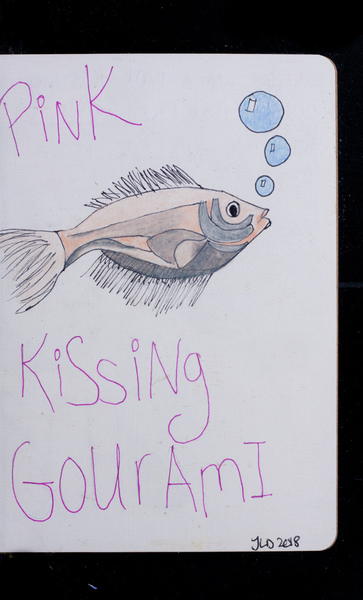 PiNK
KissiNg
GOUrAmI
JLD 2018